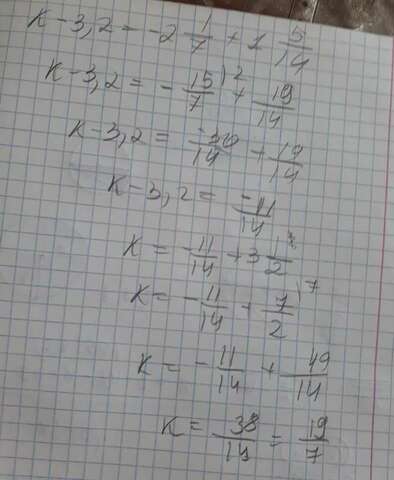 K-3,2 = -2 1/7 + 1 5/14
K-3,2 = - 15/7 \2 + 19/14
K-3,2 = -30/14 + 19/14
K-3,2 = -11/14
K = -11/14 + 3 1/2
K = - 11/14 + 7/2 \7
K = - 11/14 + 49/14
K = 38/14 = 19/7